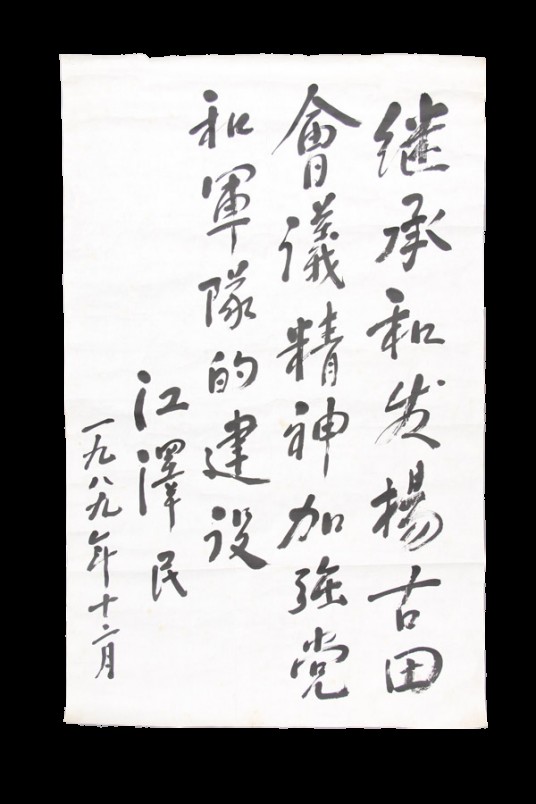 继承和发揚古田
會议精神加强党
和軍隊的建设
江澤民
一九八九年十二月